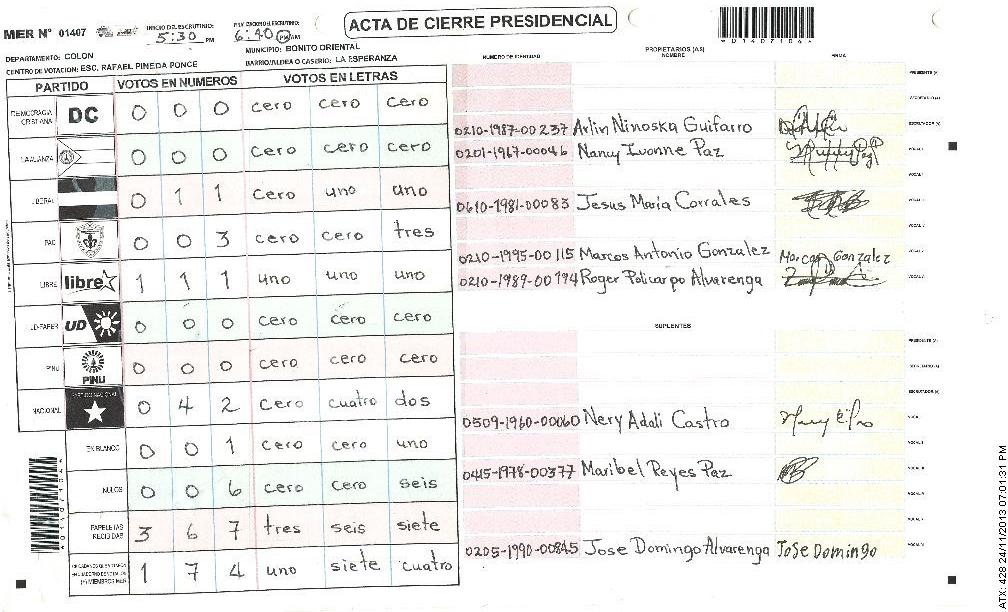 ACTA DE CIERRE PRESIDENCIAL
MER N° 01407
INICIO DEL ESCRUTINIO: 5:30 PM
6:40 PM
A01407106A
DEPARTAMENTO: COLON
MUNICIPIO: BONITO ORIENTAL
CENTRO DE VOTACION: ESC. RAFAEL PINEDA PONCE
BARRIO/ALDEA O CASERIO: LA ESPERANZA
PARTIDO VOTOS EN NUMEROS VOTOS EN LETRAS
DEMOCRACIA CRISTIANA DC 0 0 0 cero cero cero
LA ALIANZA 0 0 0 cero cero cero
LIBERAL 0 1 1 cero uno uno
PAC 0 0 3 cero cero tres
LIBRE libre 1 1 1 uno uno uno
UD-FAPER UD 0 0 0 cero cero cero
PINU PINU 0 0 0 cero cero cero
NACIONAL PARTIDO NACIONAL 0 4 2 cero cuatro dos
EN BLANCO 0 0 1 cero cero uno
NULOS 0 0 6 cero cero seis
PAPELETAS RECIBIDAS 3 6 7 tres seis siete
1 7 4 uno siete cuatro
NUMERO DE IDENTIDAD
PROPIETARIOS (AS)
NOMBRE
FIRMA
PRESIDENTE (A)
SECRETARIO (A)
0210-1987-00237 Arlin Ninoska Guifarro ESCRUTADOR (A)
0201-1967-00046 Nancy Ivonne Paz VOCAL
VOCAL
0610-1981-00083 Jesus Maria Corrales VOCAL
VOCAL
0210-1995-00115 Marcos Antonio Gonzalez Marcos Gonzalez VOCAL
0210-1989-00794 Roger Policarpo Alvarenga VOCAL
SUPLENTES
PRESIDENTE (A)
SECRETARIO (A)
ESCRUTADOR (A)
0509-1960-00060 Nery Adali Castro VOCAL
VOCAL
0445-1978-00377 Maribel Reyes Paz VOCAL
VOCAL
VOCAL
0205-1990-00845 Jose Domingo Alvarenga Jose Domingo VOCAL
ATX: 428 24/11/2013 07:01:31 PM